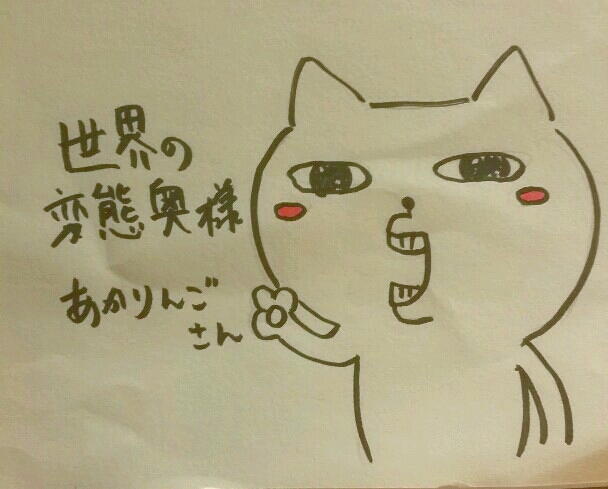 世界の
変態奥様
あかりんご
さん